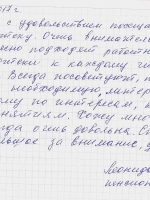 17 г.
с удовольствием посеща
теку. Очень внимательн
но подходят работни
отеки к каждому чи
Всегда посоветуют, п
необходимую, литер
му по интересам, и
нятиям. Хожу мно
гда очень довольна. Сп
льшое за внимание,
Леонида
пенсион